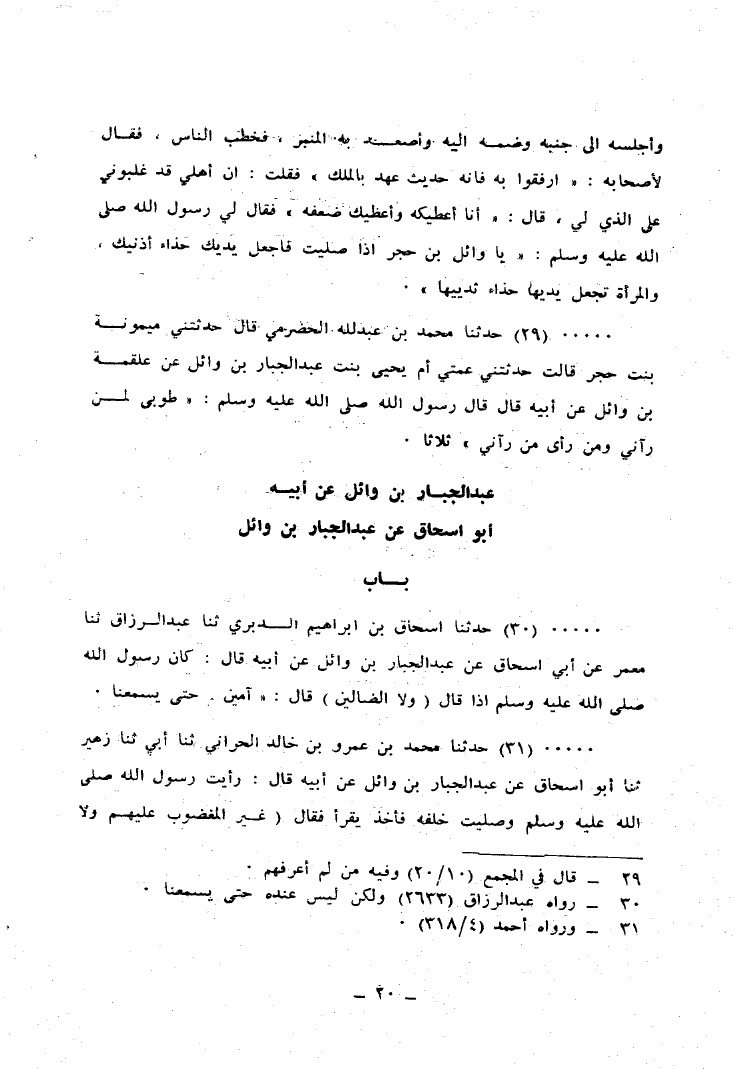 وأجلسه الى جنبه وضمه اليه وأصعد به المنبر ، فخطب الناس ، فقال
لأصحابه : « ارفقوا به فانه حديث عهد بالملك » فقلت : ان أهلي قد غلبوني
على الذي لي ، قال : « أنا أعطيكه وأعطيك ضعفه » فقال لي رسول الله صلى
الله عليه وسلم : « يا وائل بن حجر اذا صليت فاجعل يديك حذاء أذنيك ،
والمرأة تجعل يديها حذاء ثدييها » ٠
٠٠٠٠٠ (٢٩) حدثنا محمد بن عبدلله الحضرمي قال حدثتني ميمونة
بنت حجر قالت حدثتني عمتي أم يحيى بنت عبدالجبار بن وائل عن علقمة
بن وائل عن أبيه قال قال رسول الله صلى الله عليه وسلم : « طوبى لمن
رآني ومن رأى من رآني » ثلاثا ٠
عبدالجبار بن وائل عن أبيه
أبو اسحاق عن عبدالجبار بن وائل
باب
٠٠٠٠٠ (٣٠) حدثنا اسحاق بن ابراهيم الدبري ثنا عبدالرزاق ثنا
معمر عن أبي اسحاق عن عبدالجبار بن وائل عن أبيه قال : كان رسول الله
صلى الله عليه وسلم اذا قال ( ولا الضالين ) قال : « آمين . حتى يسمعنا ٠
٠٠٠٠٠ (٣١) حدثنا محمد بن عمرو بن خالد الحراني ثنا أبي ثنا زهير
ثنا أبو اسحاق عن عبدالجبار بن وائل عن أبيه قال : رأيت رسول الله صلى
الله عليه وسلم وصليت خلفه فأخذ يقرأ فقال ( غير المغضوب عليهم ولا
٢٩ – قال في المجمع (٢٠/١٠) وفيه من لم أعرفهم ٠
٣٠ – رواه عبدالرزاق (٢٦٣٣) ولكن ليس عنده حتى يسمعنا ٠
٣١ – ورواه أحمد (٣١٨/٤) ٠
– ٢٠ –